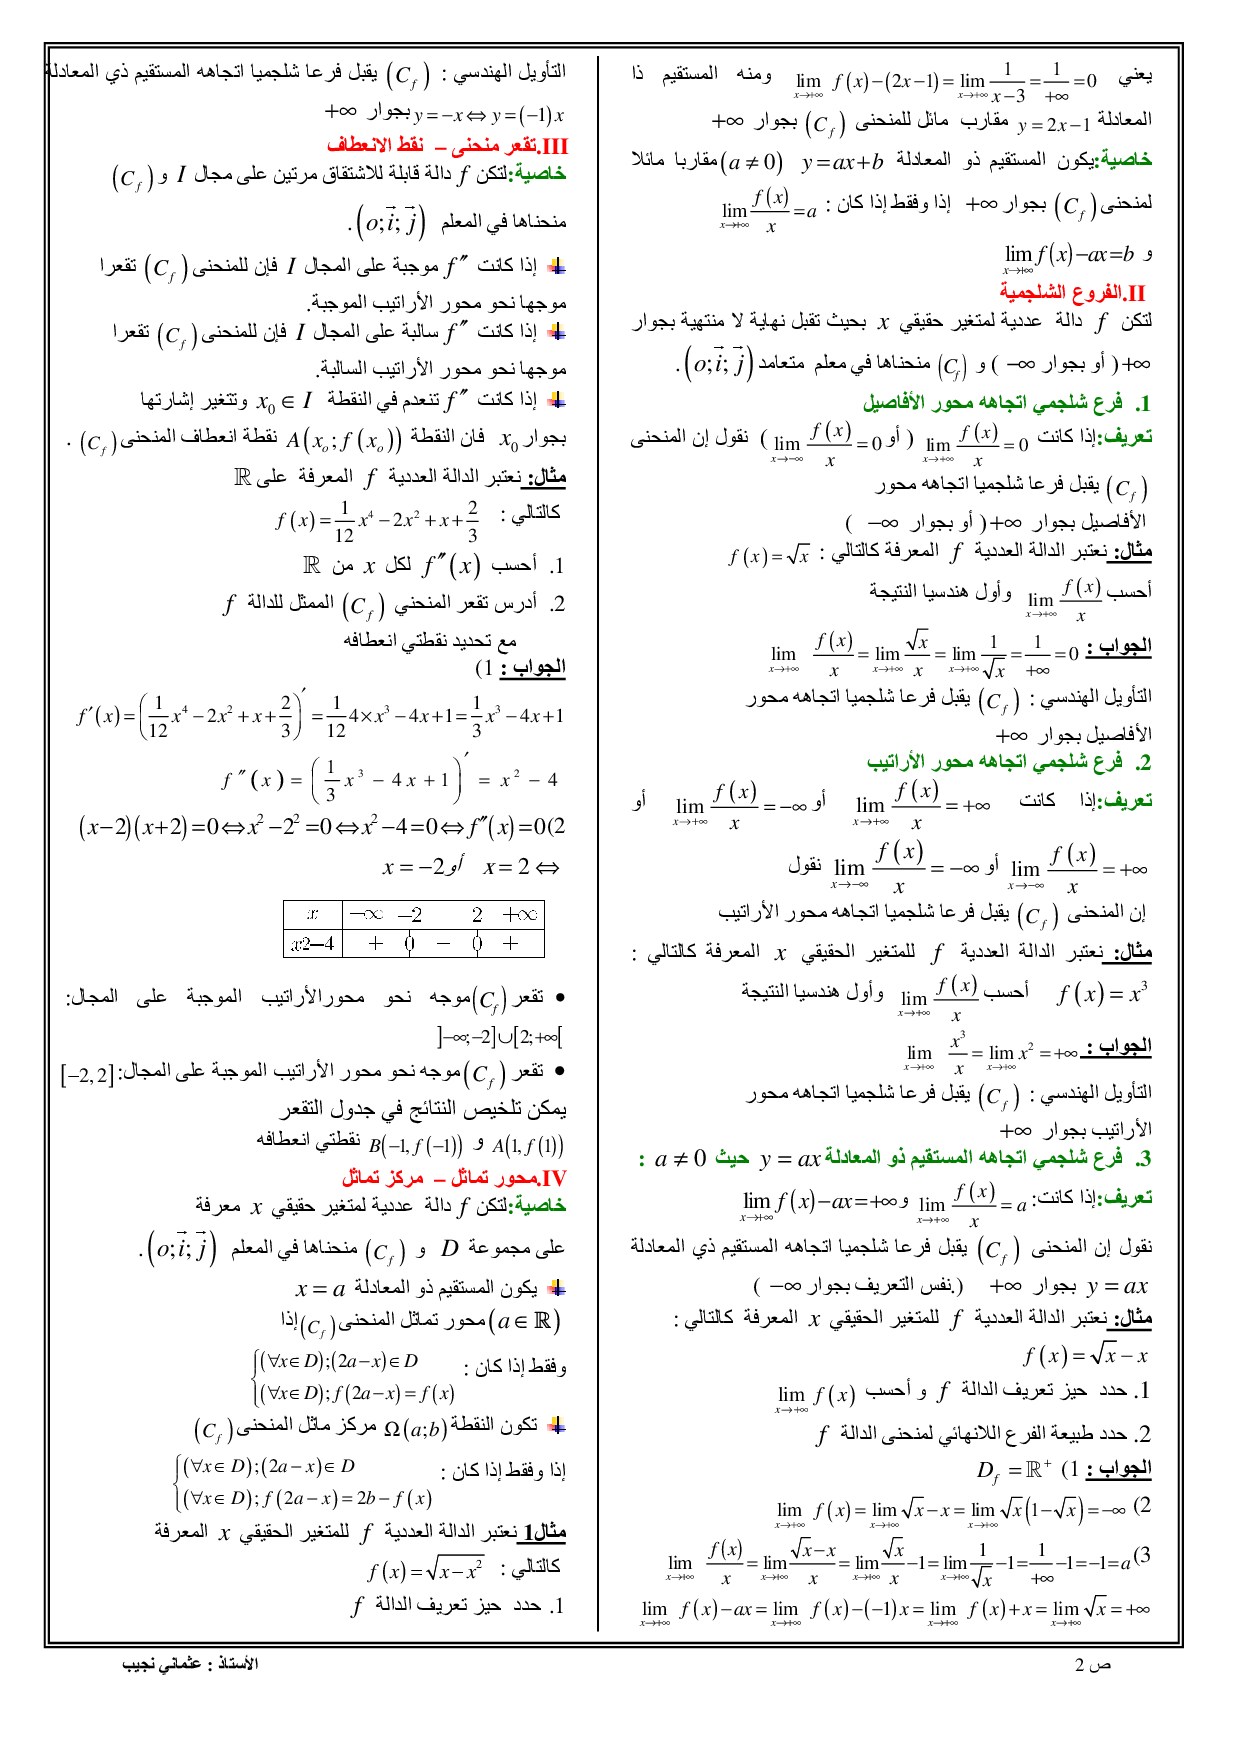 يعني lim_{x→+∞} f(x)−(2x−1) = lim_{x→+∞} 1/(x−3) = 1/(+∞) = 0 ومنه المستقيم ذا
المعادلة y=2x−1 مقارب مائل للمنحنى (C_f) بجوار +∞
خاصية:يكون المستقيم ذو المعادلة y=ax+b (a≠0) مقاربا مائلا
لمنحنى (C_f) بجوار +∞ إذا وفقط إذا كان : lim_{x→+∞} f(x)/x = a
و lim_{x→+∞} f(x)−ax=b
II.الفروع الشلجمية
لتكن f دالة عددية لمتغير حقيقي x بحيث تقبل نهاية لا منتهية بجوار
+∞ ( أو بجوار −∞ ) و (C_f) منحناها في معلم متعامد (o;i⃗;j⃗).
1. فرع شلجمي اتجاهه محور الأفاصيل
تعريف:إذا كانت lim_{x→+∞} f(x)/x = 0 ( أو lim_{x→−∞} f(x)/x = 0 ) نقول إن المنحنى
(C_f) يقبل فرعا شلجميا اتجاهه محور
الأفاصيل بجوار +∞ ( أو بجوار −∞ )
مثال: نعتبر الدالة العددية f المعرفة كالتالي : f(x)=√x
أحسب lim_{x→+∞} f(x)/x وأول هندسيا النتيجة
الجواب : lim_{x→+∞} f(x)/x = lim_{x→+∞} √x/x = lim_{x→+∞} 1/√x = 1/(+∞) = 0
التأويل الهندسي : (C_f) يقبل فرعا شلجميا اتجاهه محور
الأفاصيل بجوار +∞
2. فرع شلجمي اتجاهه محور الأراتيب
تعريف:إذا كانت lim_{x→+∞} f(x)/x = +∞ أو lim_{x→+∞} f(x)/x = −∞ أو
lim_{x→−∞} f(x)/x = +∞ أو lim_{x→−∞} f(x)/x = −∞ نقول
إن المنحنى (C_f) يقبل فرعا شلجميا اتجاهه محور الأراتيب
مثال: نعتبر الدالة العددية f للمتغير الحقيقي x المعرفة كالتالي :
f(x)=x³ أحسب lim_{x→+∞} f(x)/x وأول هندسيا النتيجة
الجواب : lim_{x→+∞} x³/x = lim_{x→+∞} x² = +∞
التأويل الهندسي : (C_f) يقبل فرعا شلجميا اتجاهه محور
الأراتيب بجوار +∞
3. فرع شلجمي اتجاهه المستقيم ذو المعادلة y=ax حيث a≠0 :
تعريف:إذا كانت: lim_{x→+∞} f(x)/x = a و lim_{x→+∞} f(x)−ax=+∞
نقول إن المنحنى (C_f) يقبل فرعا شلجميا اتجاهه المستقيم ذي المعادلة
y=ax بجوار +∞ (.نفس التعريف بجوار −∞ )
مثال: نعتبر الدالة العددية f للمتغير الحقيقي x المعرفة كالتالي :
f(x)=√x−x
1. حدد حيز تعريف الدالة f و أحسب lim_{x→+∞} f(x)
2. حدد طبيعة الفرع اللانهائي لمنحنى الدالة f
الجواب : 1) D_f = ℝ⁺
2) lim_{x→+∞} f(x) = lim_{x→+∞} √x−x = lim_{x→+∞} √x(1−√x) = −∞
3) lim_{x→+∞} f(x)/x = lim_{x→+∞} (√x−x)/x = lim_{x→+∞} √x/x −1 = lim_{x→+∞} 1/√x −1 = 1/(+∞) −1 = −1 = a
lim_{x→+∞} f(x)−ax = lim_{x→+∞} f(x)−(−1)x = lim_{x→+∞} f(x)+x = lim_{x→+∞} √x = +∞
التأويل الهندسي : (C_f) يقبل فرعا شلجميا اتجاهه المستقيم ذي المعادلة
y=−x⇔y=(−1)x بجوار +∞
III.تقعر منحنى – نقط الانعطاف
خاصية:لتكن f دالة قابلة للاشتقاق مرتين على مجال I و (C_f)
منحناها في المعلم (o;i⃗;j⃗).
إذا كانت f″ موجبة على المجال I فإن للمنحنى (C_f) تقعرا
موجها نحو محور الأراتيب الموجبة.
إذا كانت f″ سالبة على المجال I فإن للمنحنى (C_f) تقعرا
موجها نحو محور الأراتيب السالبة.
إذا كانت f″ تنعدم في النقطة x₀∈I وتتغير إشارتها
بجوار x₀ فان النقطة A(x_o;f(x_o)) نقطة انعطاف المنحنى (C_f) .
مثال: نعتبر الدالة العددية f المعرفة على ℝ
كالتالي : f(x)=1/12 x⁴−2x²+x+2/3
1. أحسب f″(x) لكل x من ℝ
2. أدرس تقعر المنحني (C_f) الممثل للدالة f
مع تحديد نقطتي انعطافه
الجواب : 1)
f′(x)=(1/12 x⁴−2x²+x+2/3)′=1/12 4×x³−4x+1=1/3 x³−4x+1
f″(x)=(1/3 x³−4x+1)′=x²−4
2) f″(x)=0⇔x²−4=0⇔x²−2²=0⇔(x−2)(x+2)=0
⇔ x=2 أو x=−2
x −∞ −2 2 +∞
x2−4 + 0 − 0 +
• تقعر (C_f) موجه نحو محورالأراتيب الموجبة على المجال:
]−∞;−2]∪[2;+∞[
• تقعر (C_f) موجه نحو محور الأراتيب الموجبة على المجال: [−2,2]
يمكن تلخيص النتائج في جدول التقعر
A(1,f(1)) و B(−1,f(−1)) نقطتي انعطافه
IV.محور تماثل – مركز تماثل
خاصية:لتكن f دالة عددية لمتغير حقيقي x معرفة
على مجموعة D و (C_f) منحناها في المعلم (o;i⃗;j⃗).
يكون المستقيم ذو المعادلة x=a
(a∈ℝ) محور تماثل المنحنى (C_f) إذا
وفقط إذا كان : {(∀x∈D);(2a−x)∈D
(∀x∈D);f(2a−x)=f(x)
تكون النقطة Ω(a;b) مركز ماثل المنحنى (C_f)
إذا وفقط إذا كان : {(∀x∈D);(2a−x)∈D
(∀x∈D);f(2a−x)=2b−f(x)
مثال1 نعتبر الدالة العددية f للمتغير الحقيقي x المعرفة
كالتالي : f(x)=√(x−x²)
1. حدد حيز تعريف الدالة f
ص 2
الأستاذ : عثماني نجيب